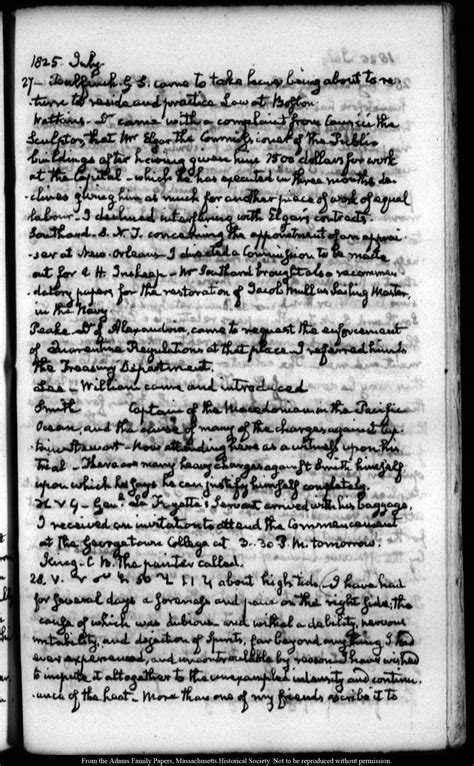 1825. July.
27 — Bulfinch. G. S. came to take leave, being about to re-
turn to reside and practice Law at Boston.
Watkins. D. came with a complaint from Causici the
Sculptor, that Mr Elgar the Commissioner of the Public
buildings after having given him 1500 dollars for work
at the Capitol — which he has executed in three months de-
clines giving him as much for another piece of work of equal
labour — I declined interfering with Elgar's contracts.
Southard. S. concerning the appointment of an
at New-Orleans. I directed a Commission to be made
out for Mr Southard brought also recommen-
datory papers for the restoration of Jacob Mull as Sailing Master,
in the Navy.
Peake. Dr of Alexandria, came to request the enforcement
of Quarantine Regulations at that place. I referred him to
the Treasury Department.
Lee — William came and introduced
Smith Captain of the Macedonian in the Pacific
Ocean, and the of many of the charges against Cap-
tain Stewart — Now attending here as a witness upon his
trial — There are many heavy charges against Smith himself
upon which he says he can justify himself completely.
Genl La Fayette's Servant arrived with his baggage.
I received an invitation to attend the Commencement
at the Georgetown College at 3.30 P.M. tomorrow.
King — C. B. The painter called.
28. V. about high tide. I have had
for several days a soreness and pain on the right side, the
cause of which was dubious and withal a debility, nervous
irritability, and dejection of Spirits, far beyond any thing I had
ever experienced, and uncontroulable by reason. I have wished
to impute it altogether to the unexampled intensity and continu-
ance of the heat — More than one of my friends ascribe it to
From the Adams Family Papers, Massachusetts Historical Society. Not to be reproduced without permission.